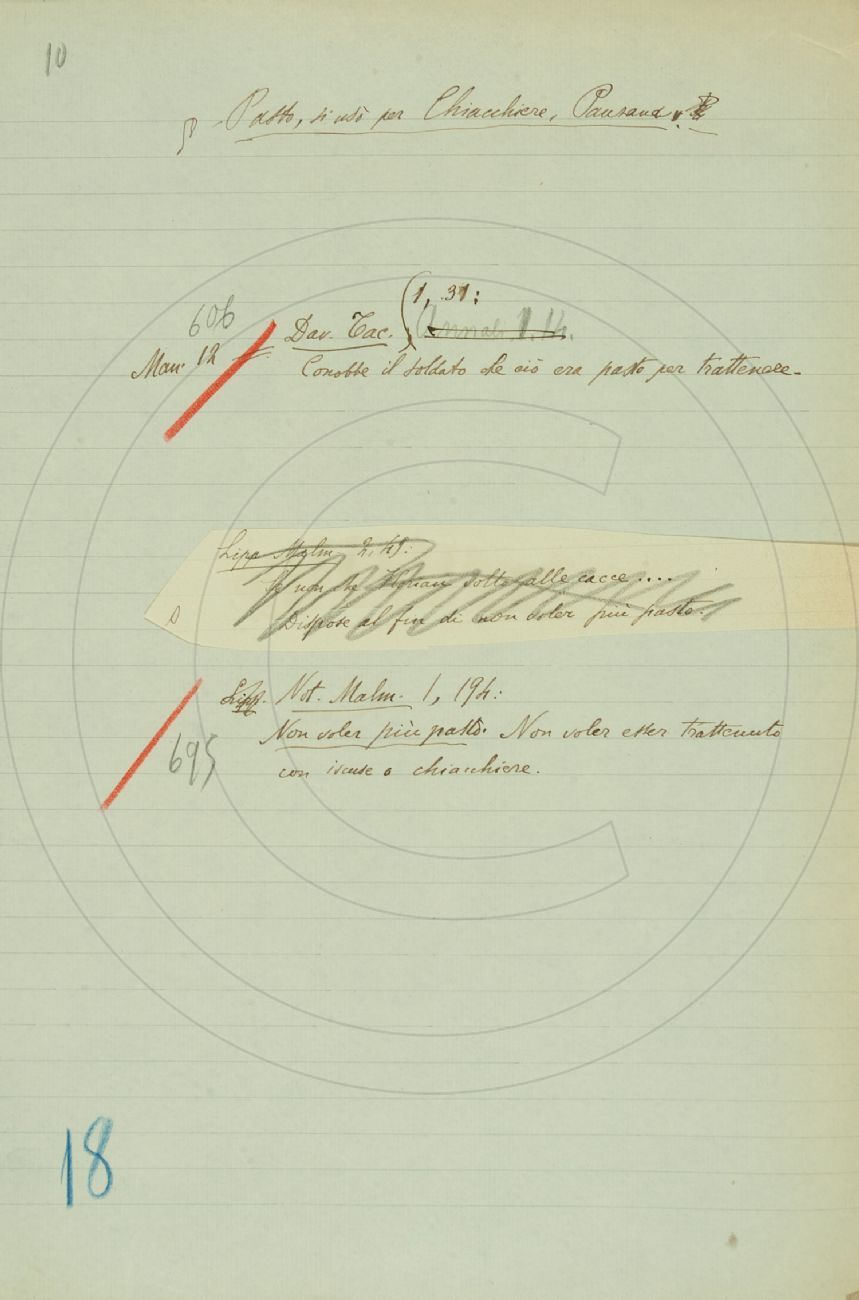 10
§ - Pasto, si usò per Chiacchiere,
606
Dav. Tac. (1, 31:
Annal. 1. 14.
Man. 12
Conobbe il soldato che ciò era pasto per trattenere.
Lipp. Malm. 2, 48:
E non che volti alle cacce....
Dispose al fin di non voler più pasto.
Lipp. Not. Malm. 1, 194:
Non voler più pasto. Non voler esser trattenuto
695
con iscuse o chiacchiere.
18